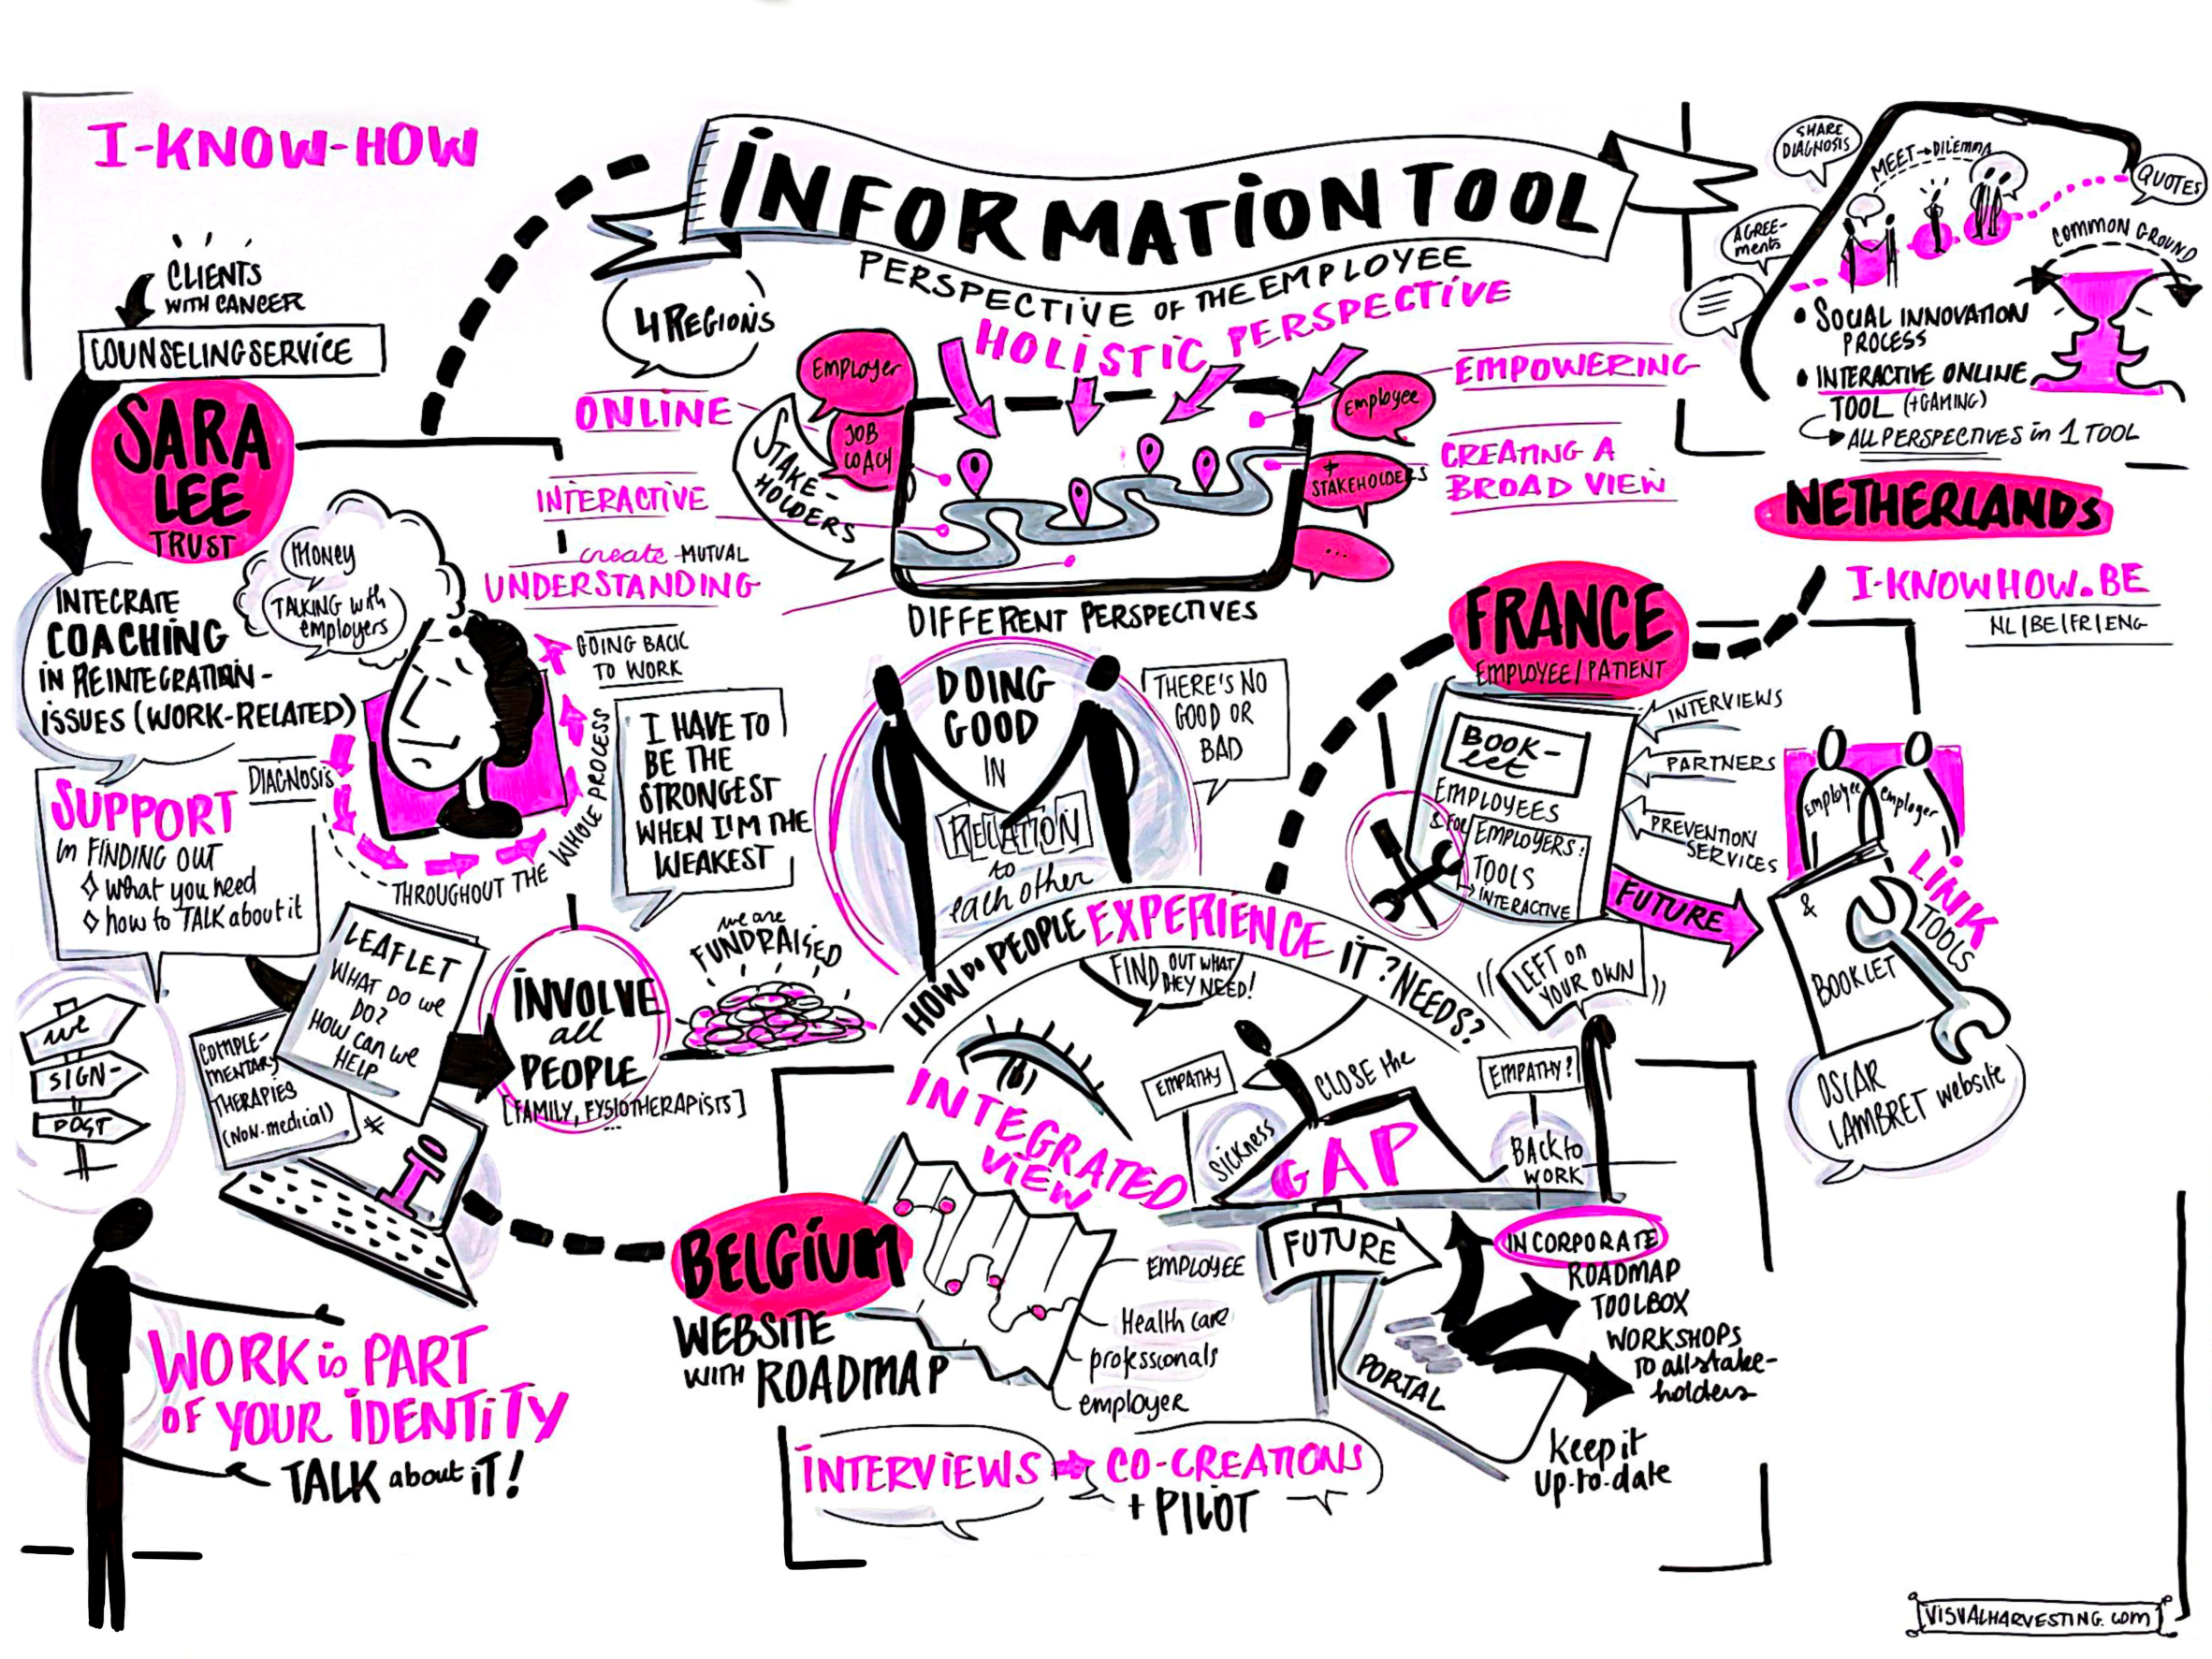 I-KNOW-HOW
CLIENTS
WITH CANCER
COUNSELINGSERVICE
SARA
LEE
TRUST
INTEGRATE
COACHING
IN REINTEGRATION-
ISSUES (WORK-RELATED)
MONEY
TALKING with
employers
GOING BACK
TO WORK
DIAGNOSIS
THROUGHOUT THE WHOLE PROCESS
SUPPORT
in FINDING OUT
◊ what you need
◊ how to TALK about it
I HAVE TO
BE THE
STRONGEST
WHEN I'M THE
WEAKEST
we
SIGN-
POST
LEAFLET
WHAT DO we
DO?
HOW CAN WE
HELP
COMPLE-
MENTARY
THERAPIES
(NON-medical)
i
INVOLVE
all
PEOPLE
[FAMILY, FYSIOTHERAPISTS]
...
we are
FUNDRAISED
WORK is PART
OF YOUR IDENTITY
TALK about iT!
INFORMATION TOOL
PERSPECTIVE OF THE EMPLOYEE
HOLISTIC PERSPECTIVE
4 REGIONS
ONLINE
INTERACTIVE
create MUTUAL
UNDERSTANDING
STAKE-
HOLDERS
Employer
JOB
COACH
Employee
+
STAKEHOLDERS
...
EMPOWERING
CREATING A
BROAD VIEW
DIFFERENT PERSPECTIVES
DOING
GOOD
IN
RELATION
to
each other
THERE'S NO
GOOD OR
BAD
HOW DO PEOPLE EXPERIENCE IT? NEEDS?
FIND OUT WHAT
THEY NEED!
INTEGRATED
VIEW
EMPATHY
SICKNESS
CLOSE the
GAP
EMPATHY?
BACK to
WORK
LEFT on
YOUR OWN
BELGIUM
WEBSITE
WITH ROADMAP
EMPLOYEE
Health care
professionals
employer
INTERVIEWS
CO-CREATIONS
+ PILOT
FUTURE
PORTAL
INCORPORATE
ROADMAP
TOOLBOX
WORKSHOPS
TO all stake-
holders
Keep it
Up-to-date
SHARE
DIAGNOSIS
AGREE-
ments
MEET → DILEMMA
QUOTES
COMMON GROUND
• SOCIAL INNOVATION
PROCESS
• INTERACTIVE ONLINE
TOOL (+GAMING)
ALL PERSPECTIVES in 1 TOOL
NETHERLANDS
I-KNOWHOW.BE
NL|BE|FR|ENG
FRANCE
EMPLOYEE/PATIENT
BOOK-
LET
EMPLOYEES
& FOR EMPLOYERS:
TOOLS
INTERACTIVE
INTERVIEWS
PARTNERS
PREVENTION
SERVICES
FUTURE
Employee
employer
LINK
TOOLS
&
BOOKLET
OSCAR
LAMBRET website
VISUALHARVESTING.COM